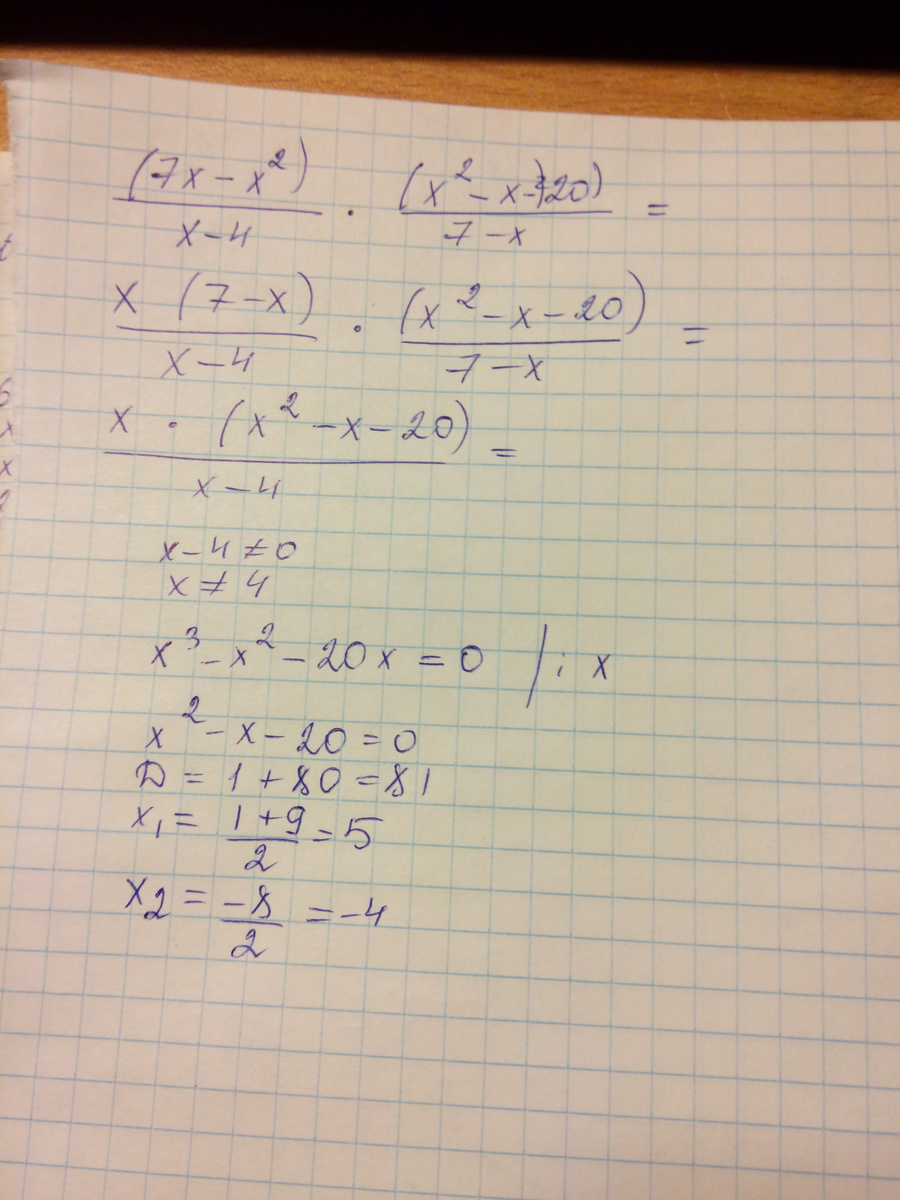 (7x - x²) / x - 4 · (x² - x - 20) / 7 - x =
x (7 - x) / x - 4 · (x² - x - 20) / 7 - x =
x · (x² - x - 20) / x - 4 =
x - 4 ≠ 0
x ≠ 4
x³ - x² - 20x = 0 | : x
x² - x - 20 = 0
D = 1 + 80 = 81
x₁ = 1 + 9 / 2 = 5
x₂ = -8 / 2 = -4